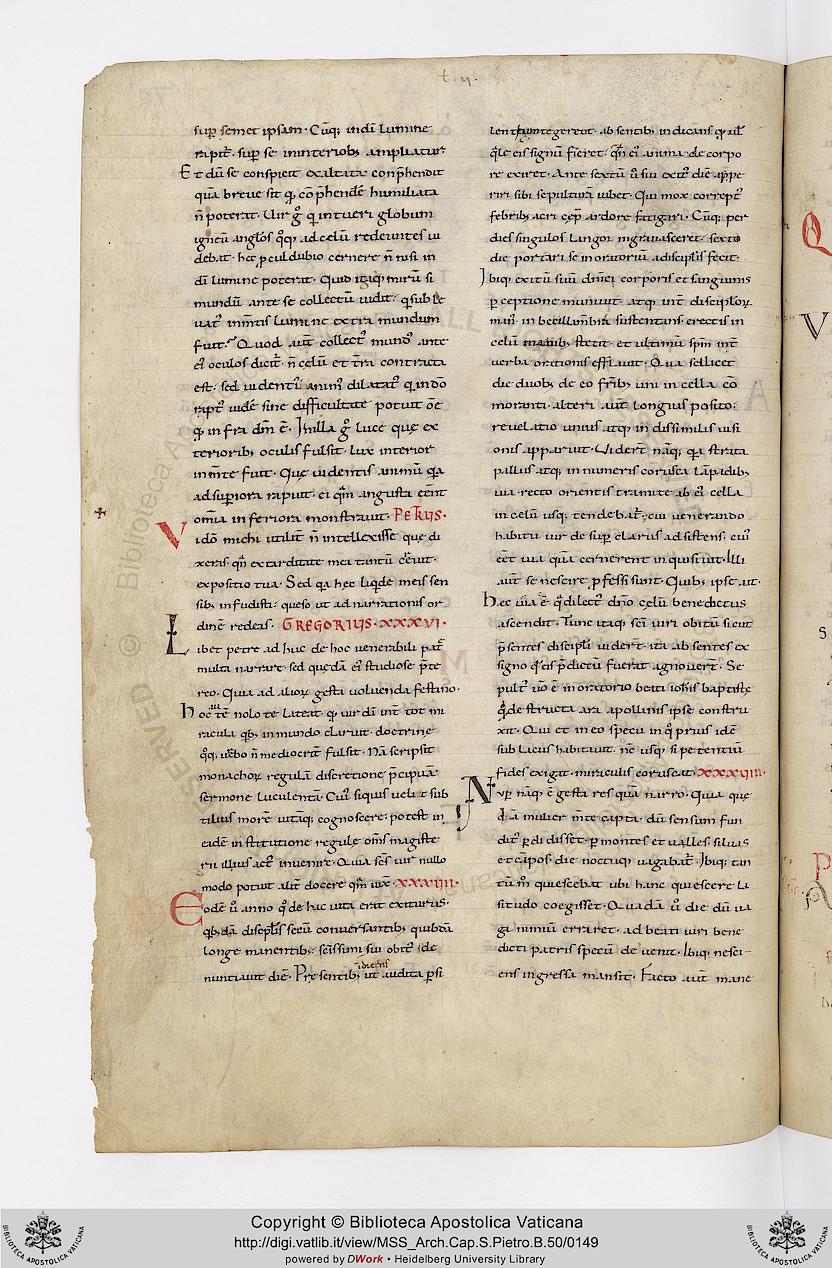 t. ii.
sup semet ipsam· Cūq; in dī lumine
rapit᷑· sup se in interiorib; ampliatur
Et dū se conspicit exaltata conp̄hendit
quā breve sit qd cōp̄hendē humiliata
n̄ poterat· Vir g̊ qui intueri globum
igneū anglos q̊q; ad celū redeuntes vi
debat· hec pcul dubio cernere n̄ nisi in
dī lumine poterat· Quid itaq; mirū si
mundū ante se collectū vidit· qi sub le
vat᷑ in m̄tis lumine extra mundum
fuit· Quod aūt collect᷑ mund᷑ ante
ei᷑ oculos dicit᷑· n̄ celū et t̄ra contracta
est· sed videnti᷑ anim᷑ dilatat᷑ qi in dō
rapt᷑ vidē sine difficultate potuit ōe
qd infra dm̄ ē· In illa g̊ luce quę ex
teriorib; oculis fulsit· lux interior
in m̄te fuit· Quę videntis animū qa
ad supiora rapuit· ei qm̄ angusta ēēnt
omīa inferiora monstravit· PETRUS·
Vidō michi utilit᷑ n̄ intellexisse quę di
xeras· qn̄ ex tarditate mei tantū c̄evit·
expositio tua· Sed qa hec liqde meis sen
sib; infudisti· queso ut ad narrationis or
dinē redeas· GREGORIUS· XXXVI·
Libet petre adhuc de hoc venerabili pat᷑
multa narrare· sed quędā ei᷑ studiose p̄te
reo· Quia ad alioꝝ gesta volvenda festino·
Hoc aut̄ tē nolo te lateat· qd vir dī int̄ tot mi
racula qb; in mundo claruit· doctrinę
q̊q; v̄bo n̄ mediocrit᷑ fulsit· Nā scripsit
monachoꝝ regulā discretione p̄cipuā·
sermone luculentā· Cui᷑ siquis velit sub
tilius morē vitāq; cognoscere· potest in
eadē institutione regulę om̄s magiste
rii illius act᷑ invenire· Quia scs̄ vir nullo
modo potuit alit᷑ docere qm̄ vixᵗ· XXXVII·
Eodē v̄ anno q̊ de hac vita erat exiturus·
qb;dā discip̄lis secū conversantib; quibdā
longe manentib;· scīssimi sui obit᷑ idē
nuntiavit diē· Pręsentib; indicens ut audita p si
lentium tegerent· ab sentib; indicans qd ul̄
q̊le eis signū fieret· qn̄ ei᷑ anima de corpo
re exiret· Ante sextū v̄ sui exit᷑ diē appe
riri sibi sepulturā iubet· Qui mox corrept᷑
febrib; acri cep̄ ardore fatigari· Cūq; per
dies singulos langor ingravasceret· sexto
die portari se in oratoriū a discip̄lis fecit·
Ibiq; exitū suū dn̄ici corporis et sanguinis
p ceptione munivit· atq; int̄ discip̄loꝝ
man᷑ inbecillia m̄bra sustentans· erectis in
celū manib; stetit· et ultimū sp̄m int̄
verba orationis efflavit· Qua scilicet
die duob; de eo frīb; uni in cella cō
moranti· alteri aūt longius posito;
revelatio unius atq; indissimilis visi
onis apparuit· Viderūt naq; qa strata
palliis atq; innumeris corusca lāpadib;
via recto orientis tramite ab ei᷑ cella
in celū usq; tendebat᷑; cui venerando
habitu vir desup clarus adsistens· cui᷑
ēēt via quā cernerent inquisivit· Illi
aūt se nescire pfessi sunt· Quib; ipse ait·
Hec via ē q̊ dilect᷑ dn̄o celū benedictus
ascendit· Tunc itaq; scī viri obitū sicut
p̄sentes discipl̄i viderūt ita absentes ex
signo q̊ eis p̄dictū fuerat agnoverūt· Se
pult᷑ vō ē in oratorio beati iohīs baptistę
q̊ destructa ara apollinis ipse constru
xit· Qui et in eo specu in q̊ prius idē
sublacus habitavit nc̄ usq; si petentiū
fides exigat· miraculis coruscat· XXXVIII·
Nup naq; ē gesta res quā narro· Quia quę
dā mulier m̄te capta· dū sensum fun
dit᷑ pdidisset· p montes et valles silvas
et cāpos· die noctuq; vagabat᷑· Ibiq; tan
tūm᷑ quiescebat ubi hanc quiescere la
situdo coegisset· Quadā v̄ die dū va
ga nimiū erraret· ad beati viri bene
dicti patris specū devenit· Ibiq; nesci
ens ingressa mansit· Facto aūt mane
Copyright © Biblioteca Apostolica Vaticana
http://digi.vatlib.it/view/MSS_Arch.Cap.S.Pietro.B.50/0149
powered by DWork • Heidelberg University Library